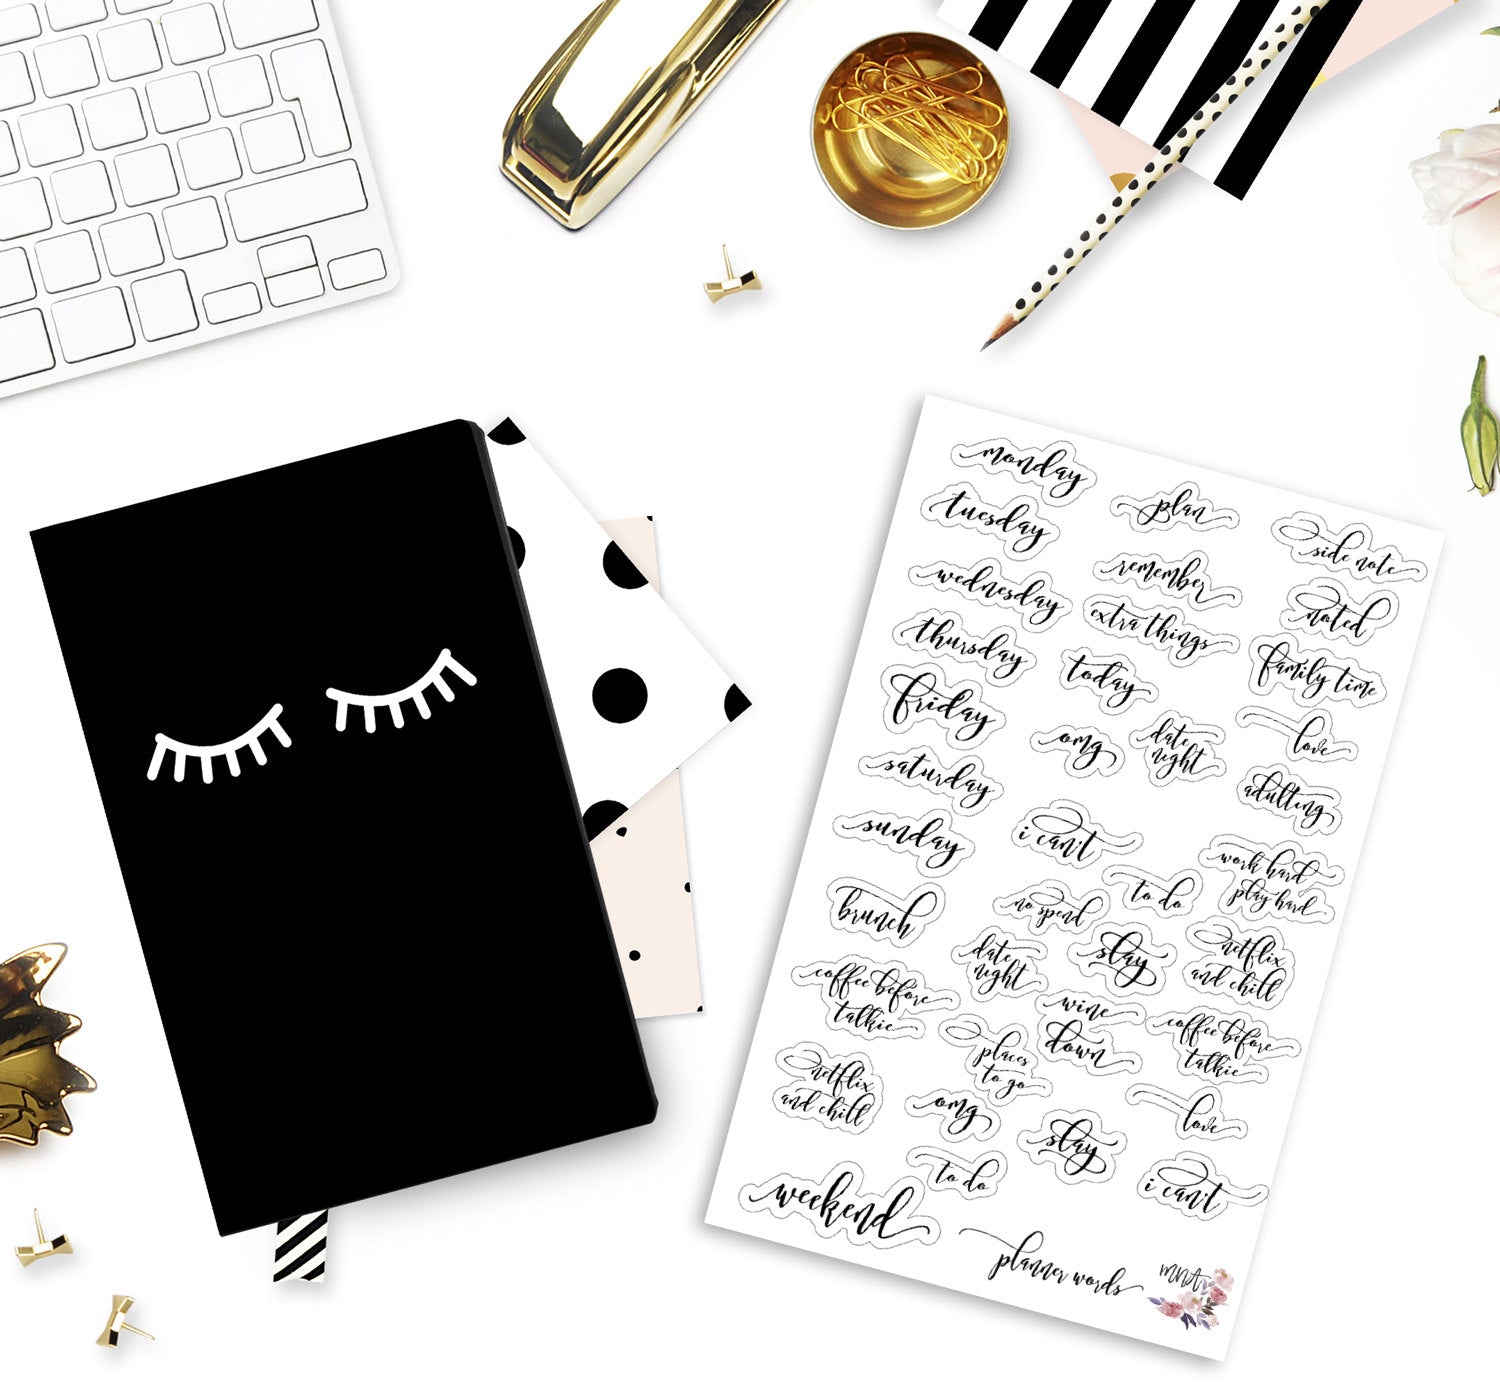 monday
tuesday
wednesday
thursday
friday
saturday
sunday
brunch
coffee before
talkie
netflix
and chill
weekend
plan
remember
extra things
today
omg
date
night
i can't
to do
no spend
date
night
slay
wine
down
places
to go
omg
slay
to do
side note
noted
family time
love
adulting
work hard
play hard
netflix
and chill
coffee before
talkie
love
i can't
planner words
MNA